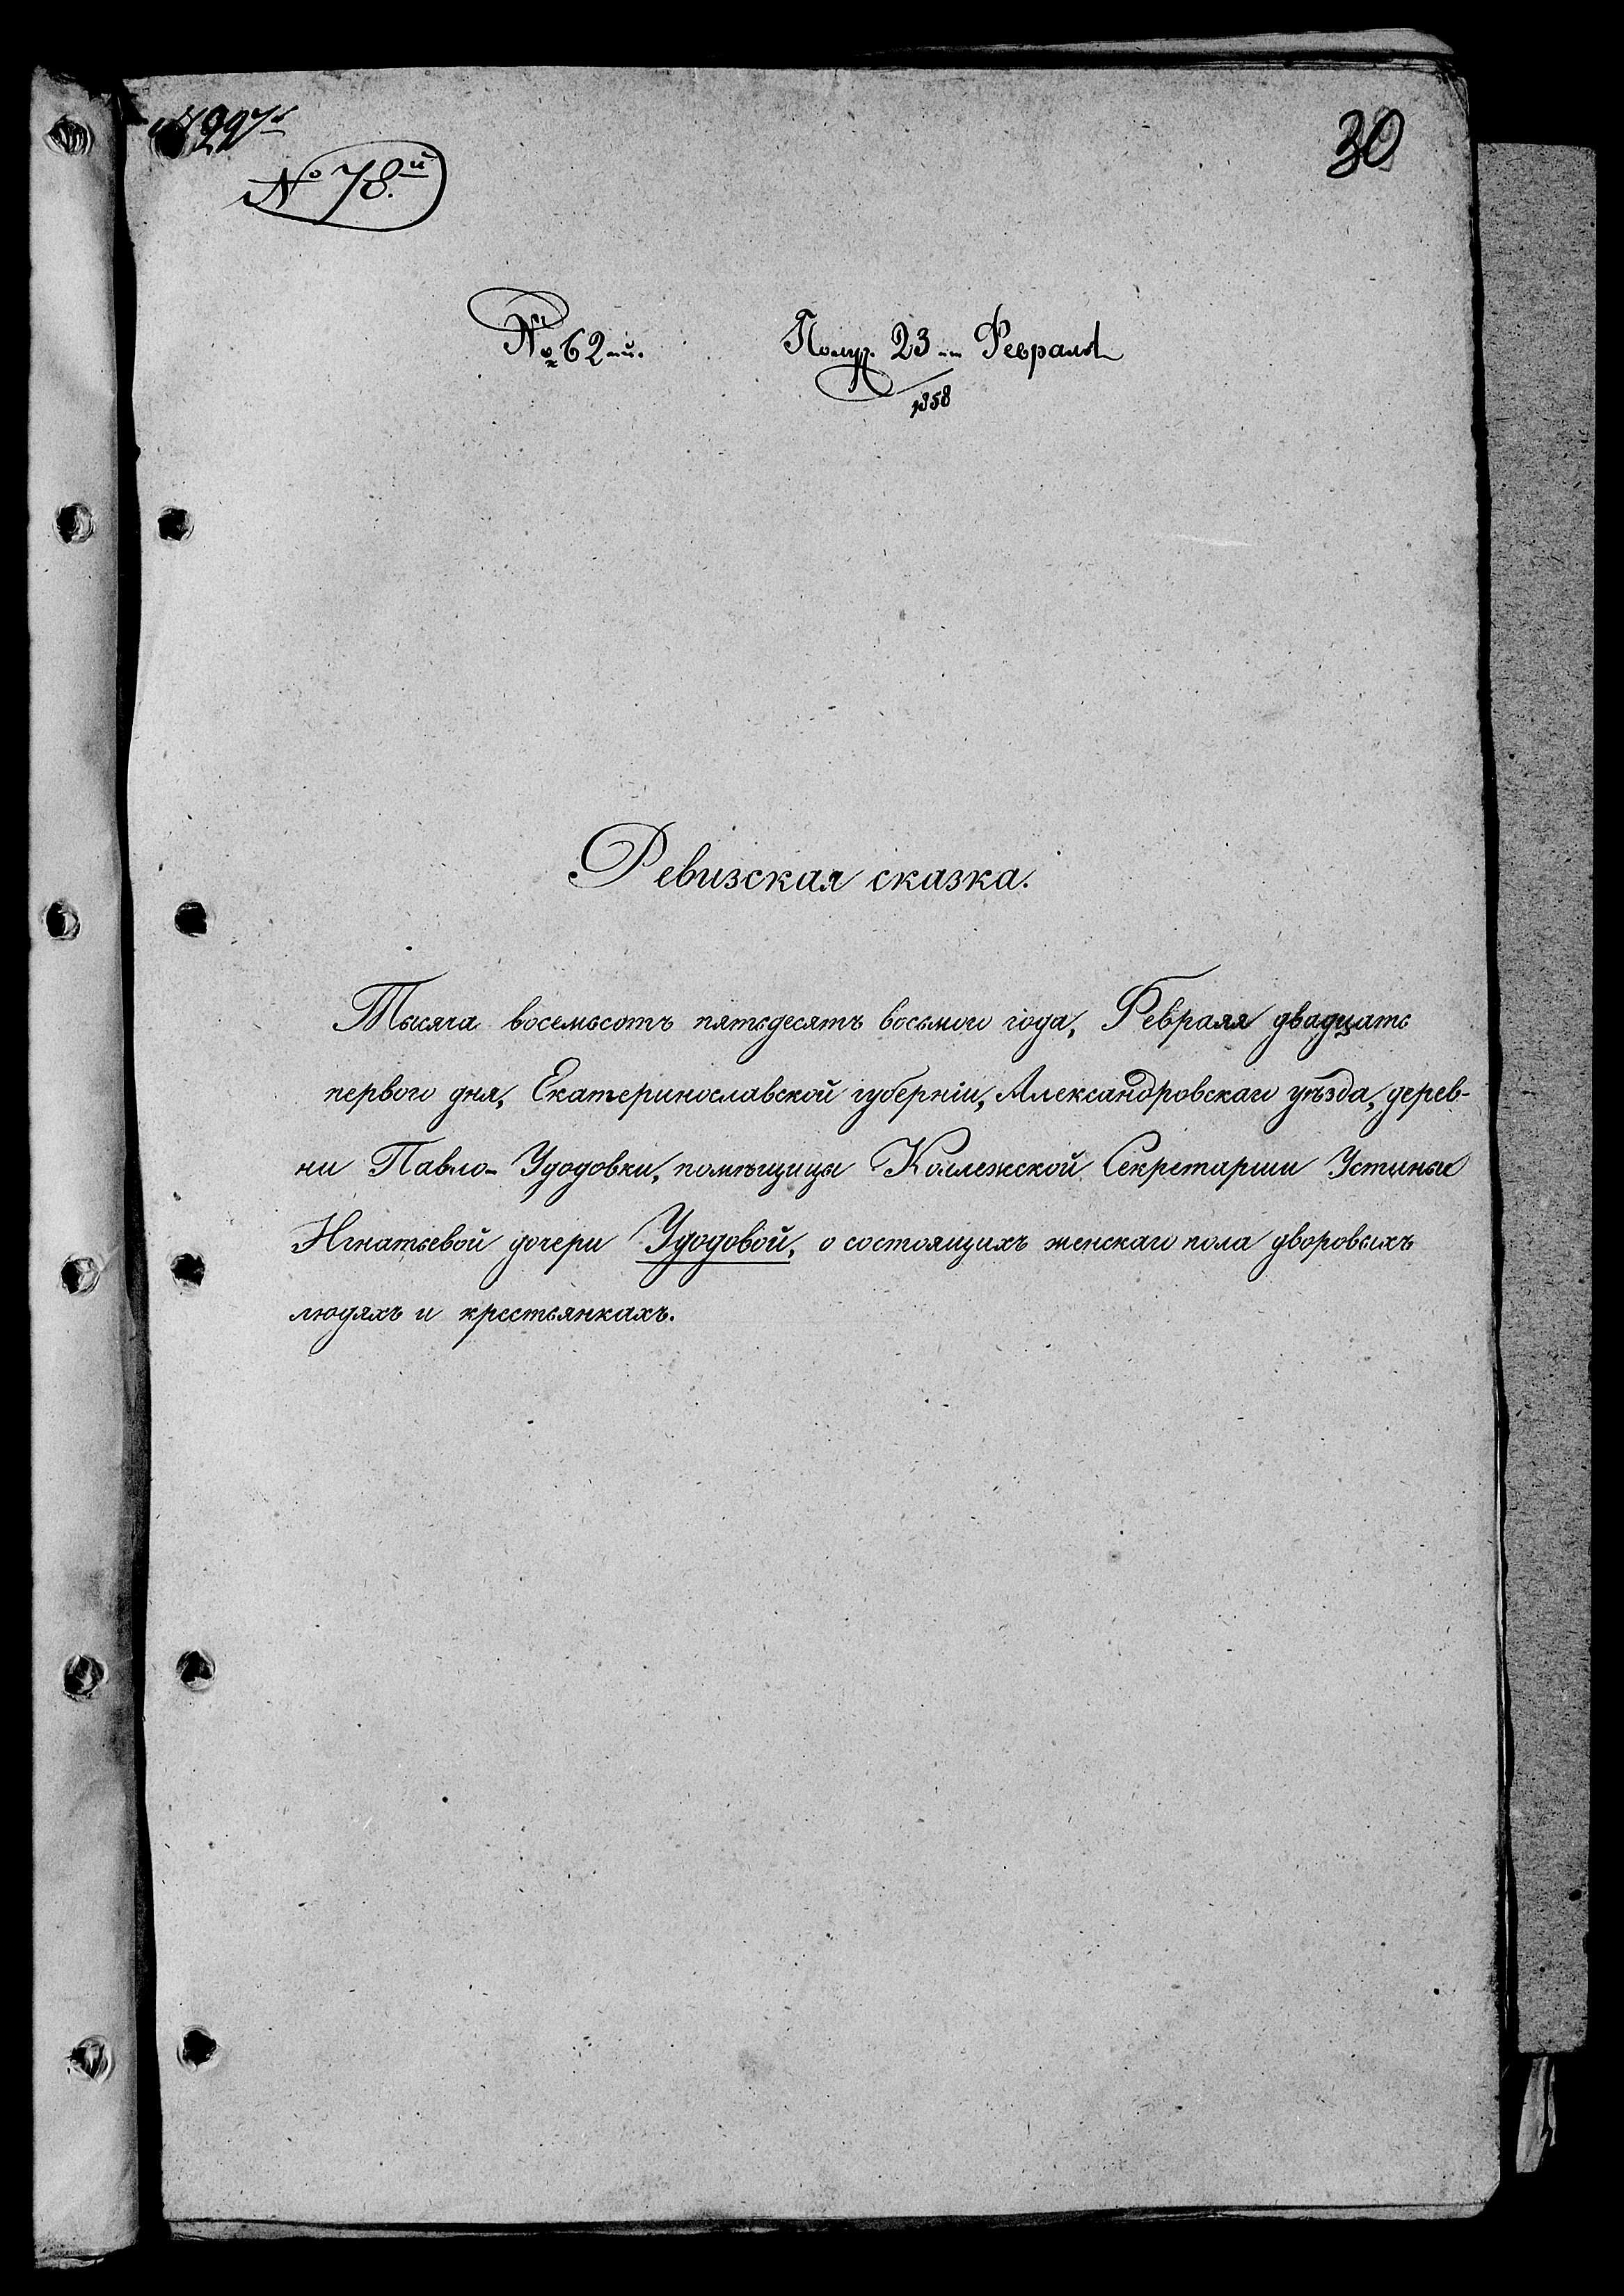 30
№ 78.й
№ 62-й. Получ. 23 Февраля
1858
Ревизская сказка.
Тысяча восемьсотъ пятьдесятъ восьмого года, Февраля двадцать
первого дня, Екатеринославской губерніи, Александровскаго уѣзда, дерев-
ни Павло-Удодовки, помѣщицы Коллежской Секретарши Устиньи
Игнатьевой дочери Удодовой, о состоящихъ женскаго пола дворовыхъ
людяхъ и крестьянкахъ.